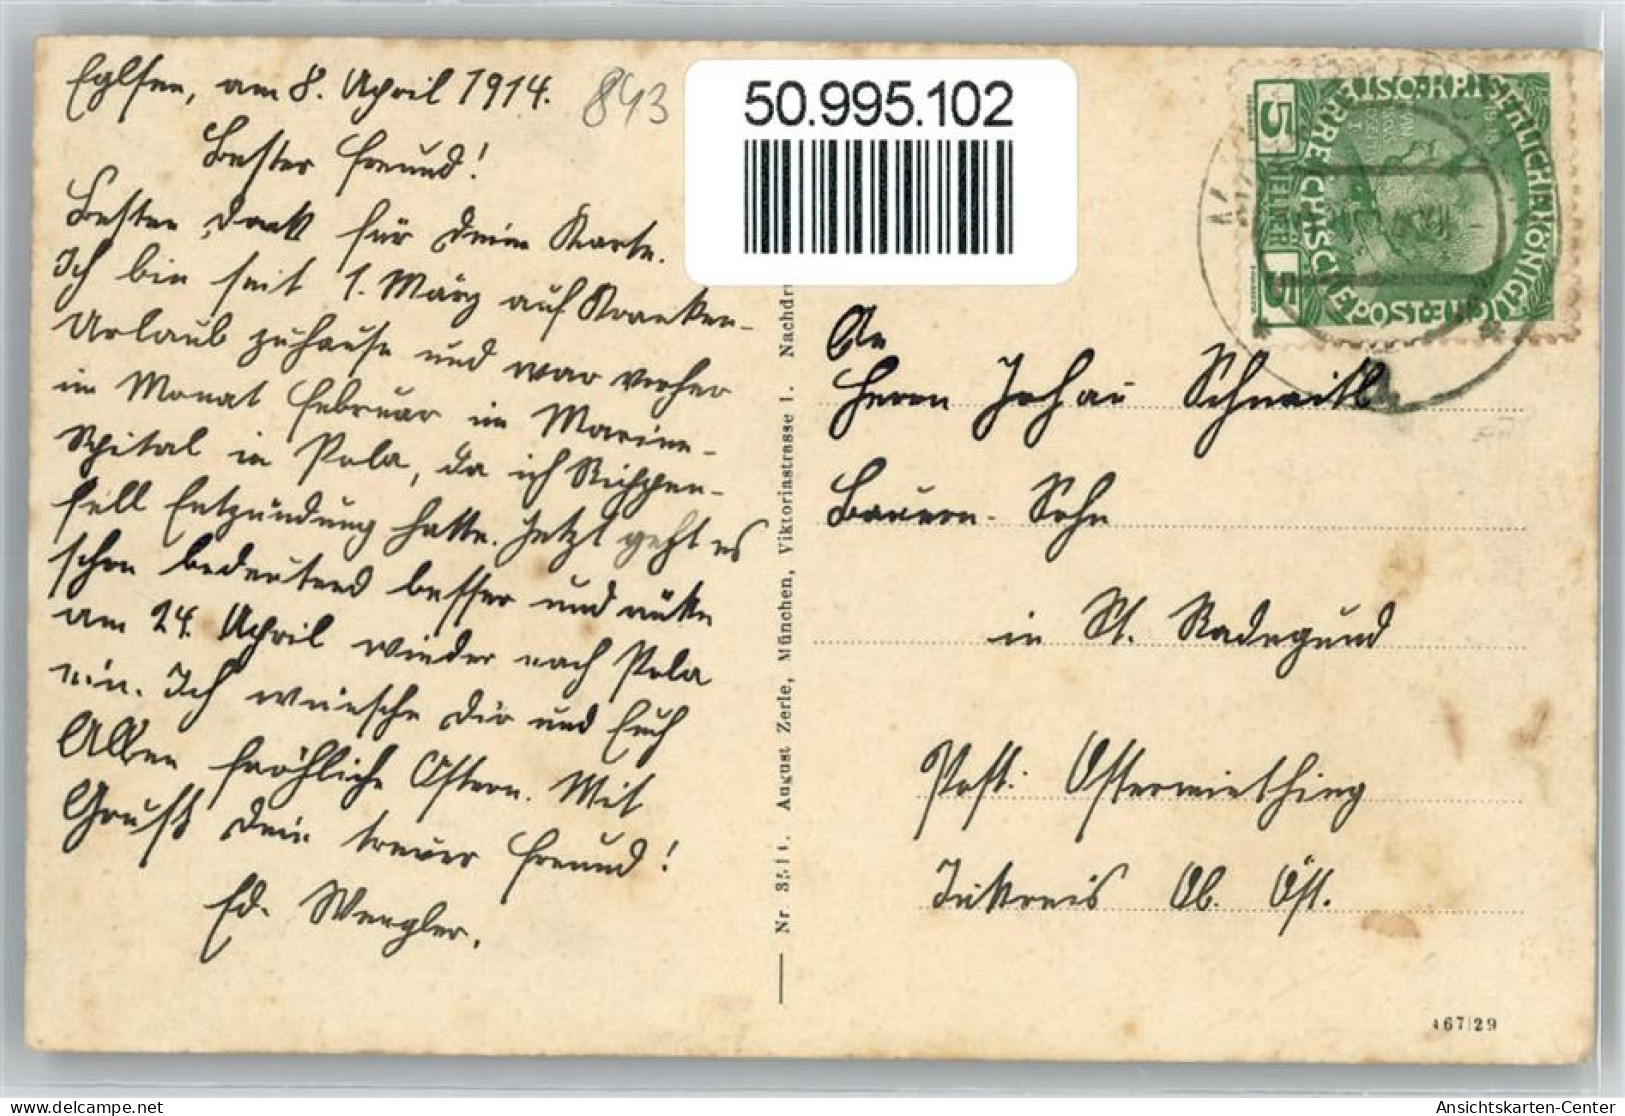 Eglsee, am 8. April 1914.
843
Bester Freund!
Besten Dank für Deine Karte.
Ich bin seit 1. März auf Kranken-
Urlaub zuhause und war vorher
im Monat Februar im Marine-
Spital in Pola, da ich Rippen-
fell Entzündung hatte. Jetzt geht es
schon bedeutend besser und rücke
am 24. April wieder nach Pola
ein. Ich wünsche Dir und Euch
Allen fröhliche Ostern. Mit
Gruß Dein treuer Freund!
Ed. Wengler.
50.995.102
Nr. 3514. August Zerle, München, Viktoriastrasse 1. Nachdr
KAISERLICHE KÖNIGLICHE
ÖSTERREICHISCHE POST
5 HELLER 5
An
Herrn Johan Schneitl
Bauern-Sohn
in St. Radegund
Post: Ostermiething
Inkreis Ob. Öst.
467/29
Ansichtskarten-Center
www.delcampe.net